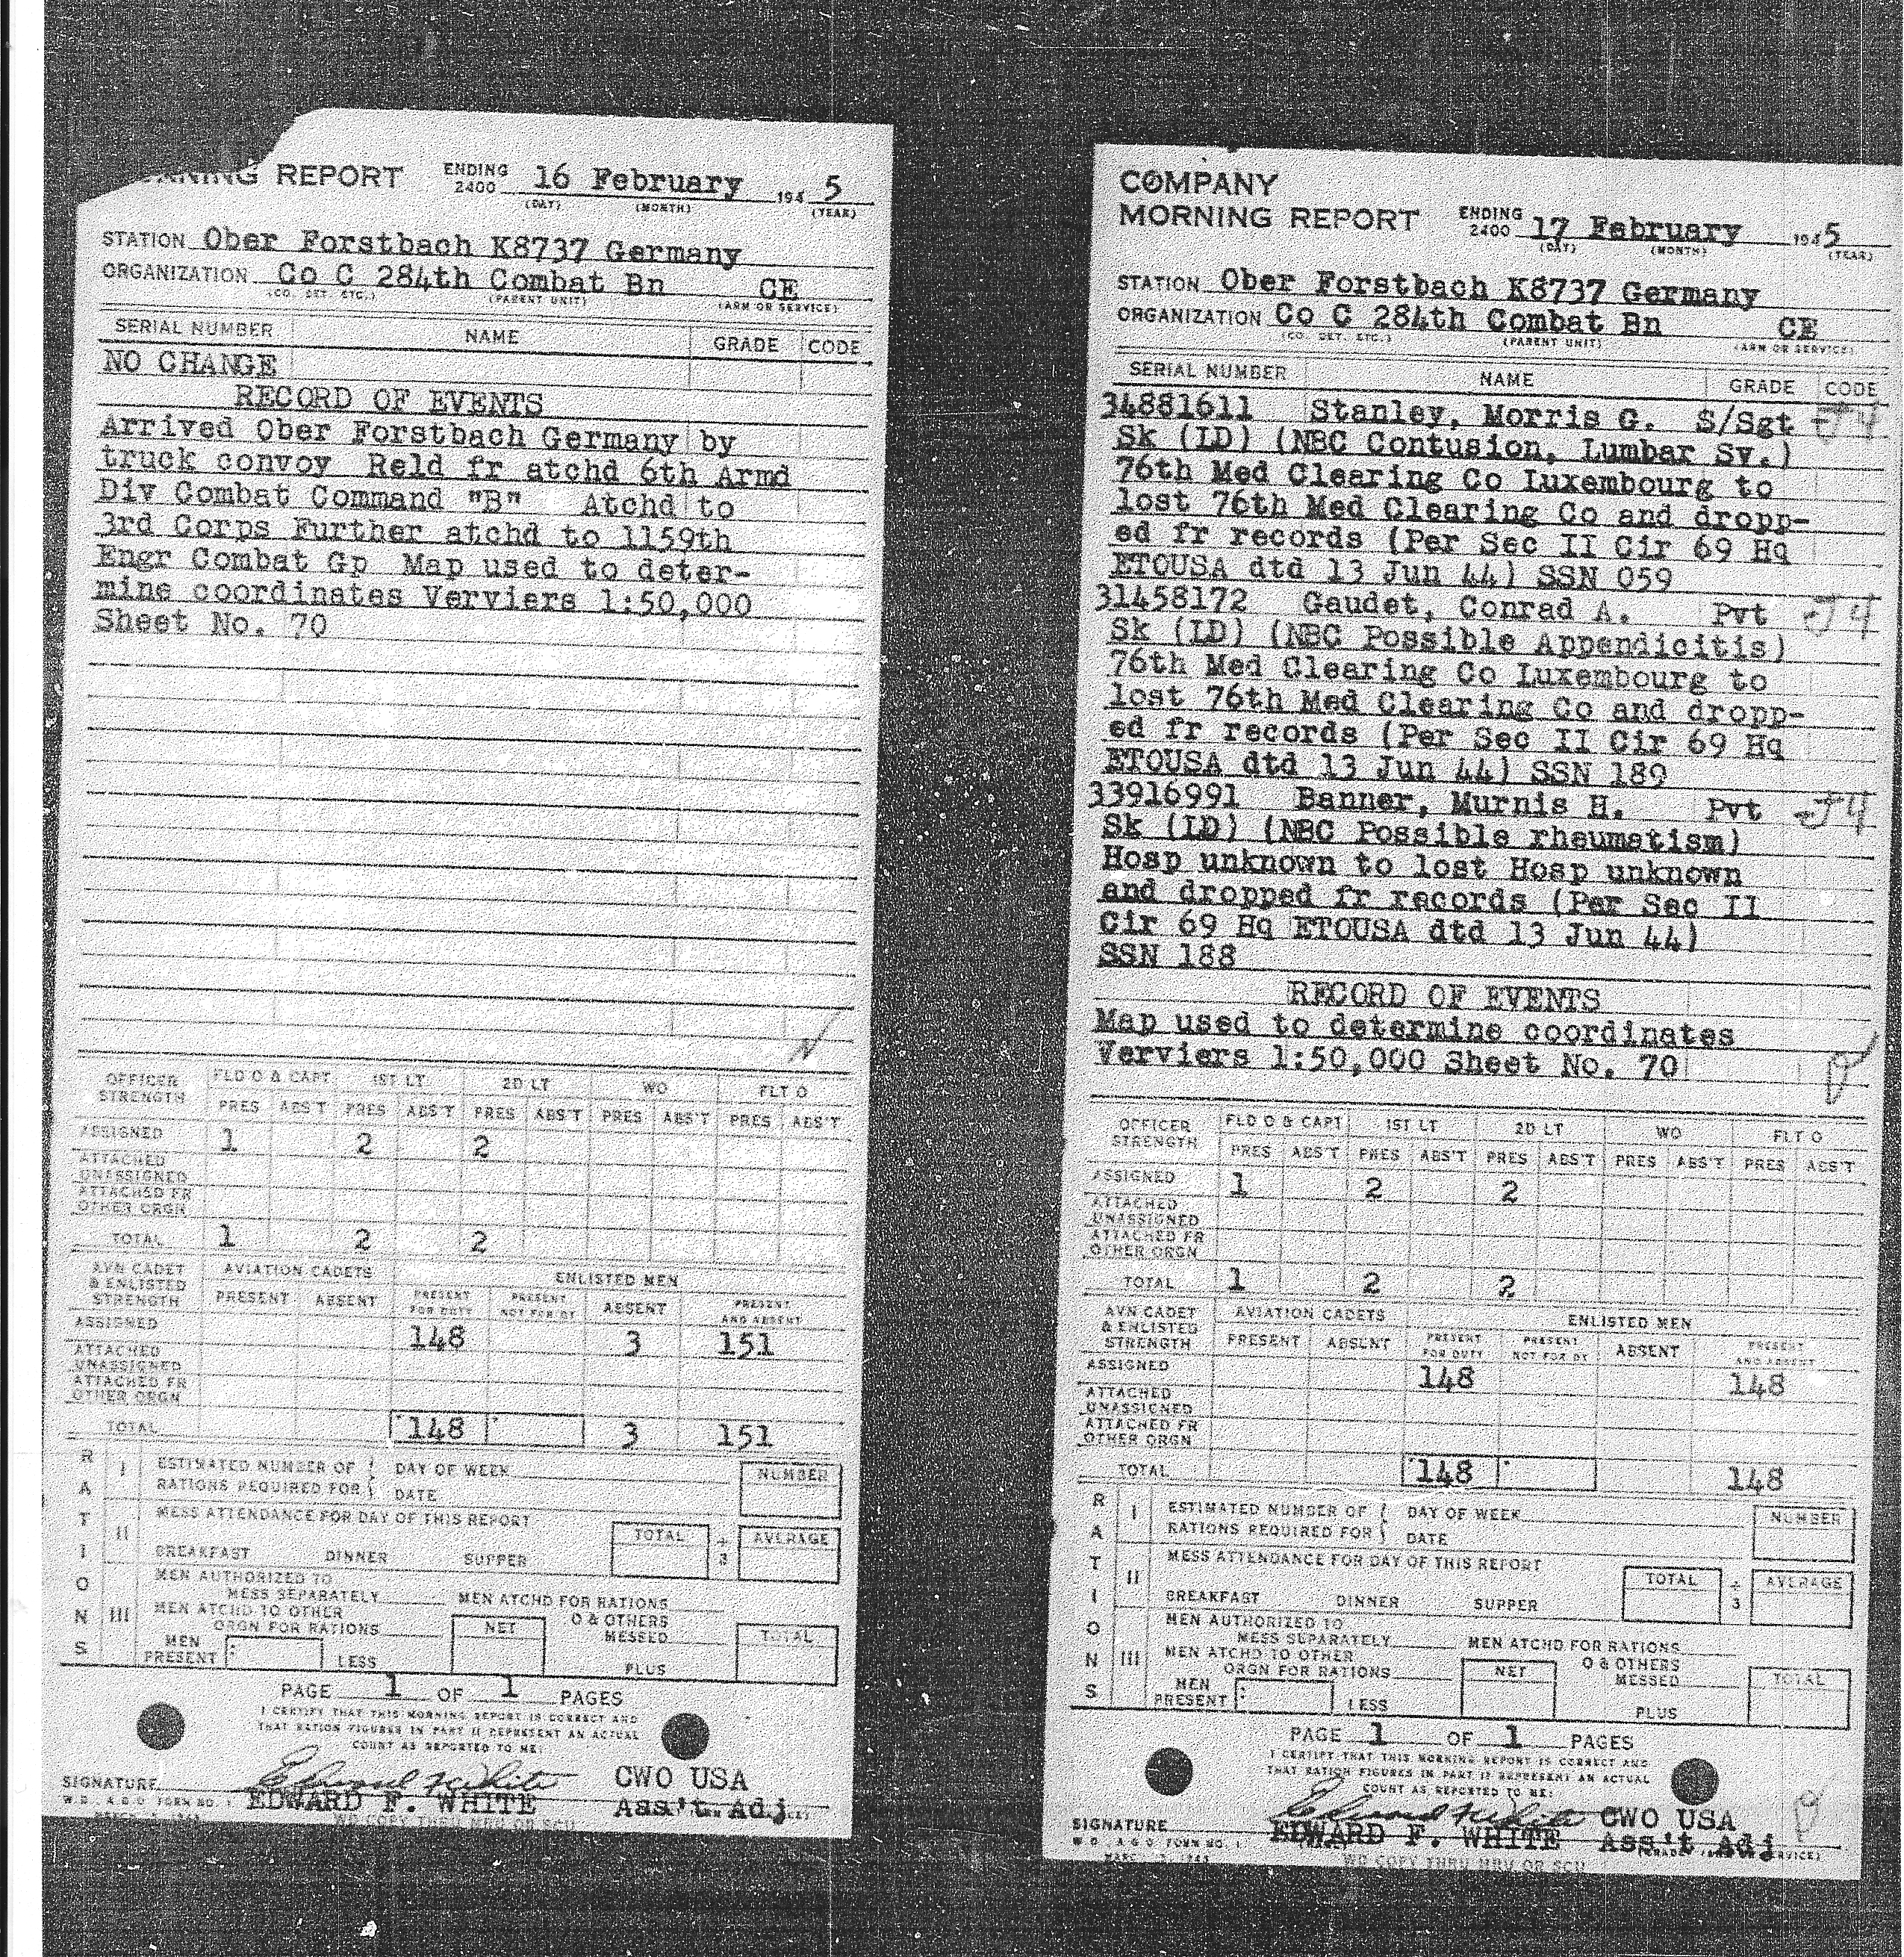 REPORT ENDING 2400 16 February 194 5
(DAY) (MONTH) (YEAR)
STATION Ober Forstbach K8737 Germany
ORGANIZATION Co C 284th Combat Bn CE
(CO. DET. ETC.) (PARENT UNIT) (ARM OR SERVICE)
SERIAL NUMBER NAME GRADE CODE
NO CHANGE
RECORD OF EVENTS
Arrived Ober Forstbach Germany by
truck convoy Reld fr atchd 6th Armd
Div Combat Command "B" Atchd to
3rd Corps Further atchd to 1159th
Engr Combat Gp Map used to deter-
mine coordinates Verviers 1:50,000
Sheet No. 70
OFFICER STRENGTH FLD O & CAPT 1ST LT 2D LT WO FLT O
PRES ABS'T PRES ABS'T PRES ABS'T PRES ABS'T PRES ABS'T
ASSIGNED 1 2 2
ATTACHED UNASSIGNED
ATTACHED FR OTHER ORGN
TOTAL 1 2 2
AVN CADET & ENLISTED STRENGTH AVIATION CADETS ENLISTED MEN
PRESENT ABSENT PRESENT FOR DUTY PRESENT NOT FOR DY ABSENT PRESENT AND ABSENT
ASSIGNED 148 3 151
ATTACHED UNASSIGNED
ATTACHED FR OTHER ORGN
TOTAL 148 3 151
RATIONS
I ESTIMATED NUMBER OF DAY OF WEEK NUMBER
RATIONS REQUIRED FOR DATE
II MESS ATTENDANCE FOR DAY OF THIS REPORT TOTAL ÷ 3 AVERAGE
BREAKFAST DINNER SUPPER
MEN AUTHORIZED TO
MESS SEPARATELY MEN ATCHD FOR RATIONS
III MEN ATCHD TO OTHER O & OTHERS
ORGN FOR RATIONS NET MESSED TOTAL
MEN PRESENT LESS PLUS
PAGE 1 OF 1 PAGES
I CERTIFY THAT THIS MORNING REPORT IS CORRECT AND
THAT RATION FIGURES IN PART II REPRESENT AN ACTUAL
COUNT AS REPORTED TO ME:
SIGNATURE Edward F White CWO USA
EDWARD F. WHITE Ass't Adj
W.D., A.G.O. FORM NO. 1
COMPANY
MORNING REPORT ENDING 2400 17 February 1945
(DAY) (MONTH) (YEAR)
STATION Ober Forstbach K8737 Germany
ORGANIZATION Co C 284th Combat Bn CE
(CO. DET. ETC.) (PARENT UNIT) (ARM OR SERVICE)
SERIAL NUMBER NAME GRADE CODE
34881611 Stanley, Morris G. S/Sgt J4
Sk (LD) (NBC Contusion, Lumbar Sv.)
76th Med Clearing Co Luxembourg to
lost 76th Med Clearing Co and dropp-
ed fr records (Per Sec II Cir 69 Hq
ETOUSA dtd 13 Jun 44) SSN 059
31458172 Gaudet, Conrad A. Pvt J4
Sk (LD) (NBC Possible Appendicitis)
76th Med Clearing Co Luxembourg to
lost 76th Med Clearing Co and dropp-
ed fr records (Per Sec II Cir 69 Hq
ETOUSA dtd 13 Jun 44) SSN 189
33916991 Banner, Murnis H. Pvt J4
Sk (LD) (NBC Possible rheumatism)
Hosp unknown to lost Hosp unknown
and dropped fr records (Per Sec II
Cir 69 Hq ETOUSA dtd 13 Jun 44)
SSN 188
RECORD OF EVENTS
Map used to determine coordinates
Verviers 1:50,000 Sheet No. 70
OFFICER STRENGTH FLD O & CAPT 1ST LT 2D LT WO FLT O
PRES ABS'T PRES ABS'T PRES ABS'T PRES ABS'T PRES ABS'T
ASSIGNED 1 2 2
ATTACHED UNASSIGNED
ATTACHED FR OTHER ORGN
TOTAL 1 2 2
AVN CADET & ENLISTED STRENGTH AVIATION CADETS ENLISTED MEN
PRESENT ABSENT PRESENT FOR DUTY PRESENT NOT FOR DY ABSENT PRESENT AND ABSENT
ASSIGNED 148 148
ATTACHED UNASSIGNED
ATTACHED FR OTHER ORGN
TOTAL 148 148
RATIONS
I ESTIMATED NUMBER OF DAY OF WEEK NUMBER
RATIONS REQUIRED FOR DATE
II MESS ATTENDANCE FOR DAY OF THIS REPORT TOTAL ÷ 3 AVERAGE
BREAKFAST DINNER SUPPER
MEN AUTHORIZED TO
MESS SEPARATELY MEN ATCHD FOR RATIONS
III MEN ATCHD TO OTHER O & OTHERS
ORGN FOR RATIONS NET MESSED TOTAL
MEN PRESENT LESS PLUS
PAGE 1 OF 1 PAGES
I CERTIFY THAT THIS MORNING REPORT IS CORRECT AND
THAT RATION FIGURES IN PART II REPRESENT AN ACTUAL
COUNT AS REPORTED TO ME:
SIGNATURE Edward F White CWO USA
EDWARD F. WHITE Ass't Adj
W.D., A.G.O. FORM NO. 1